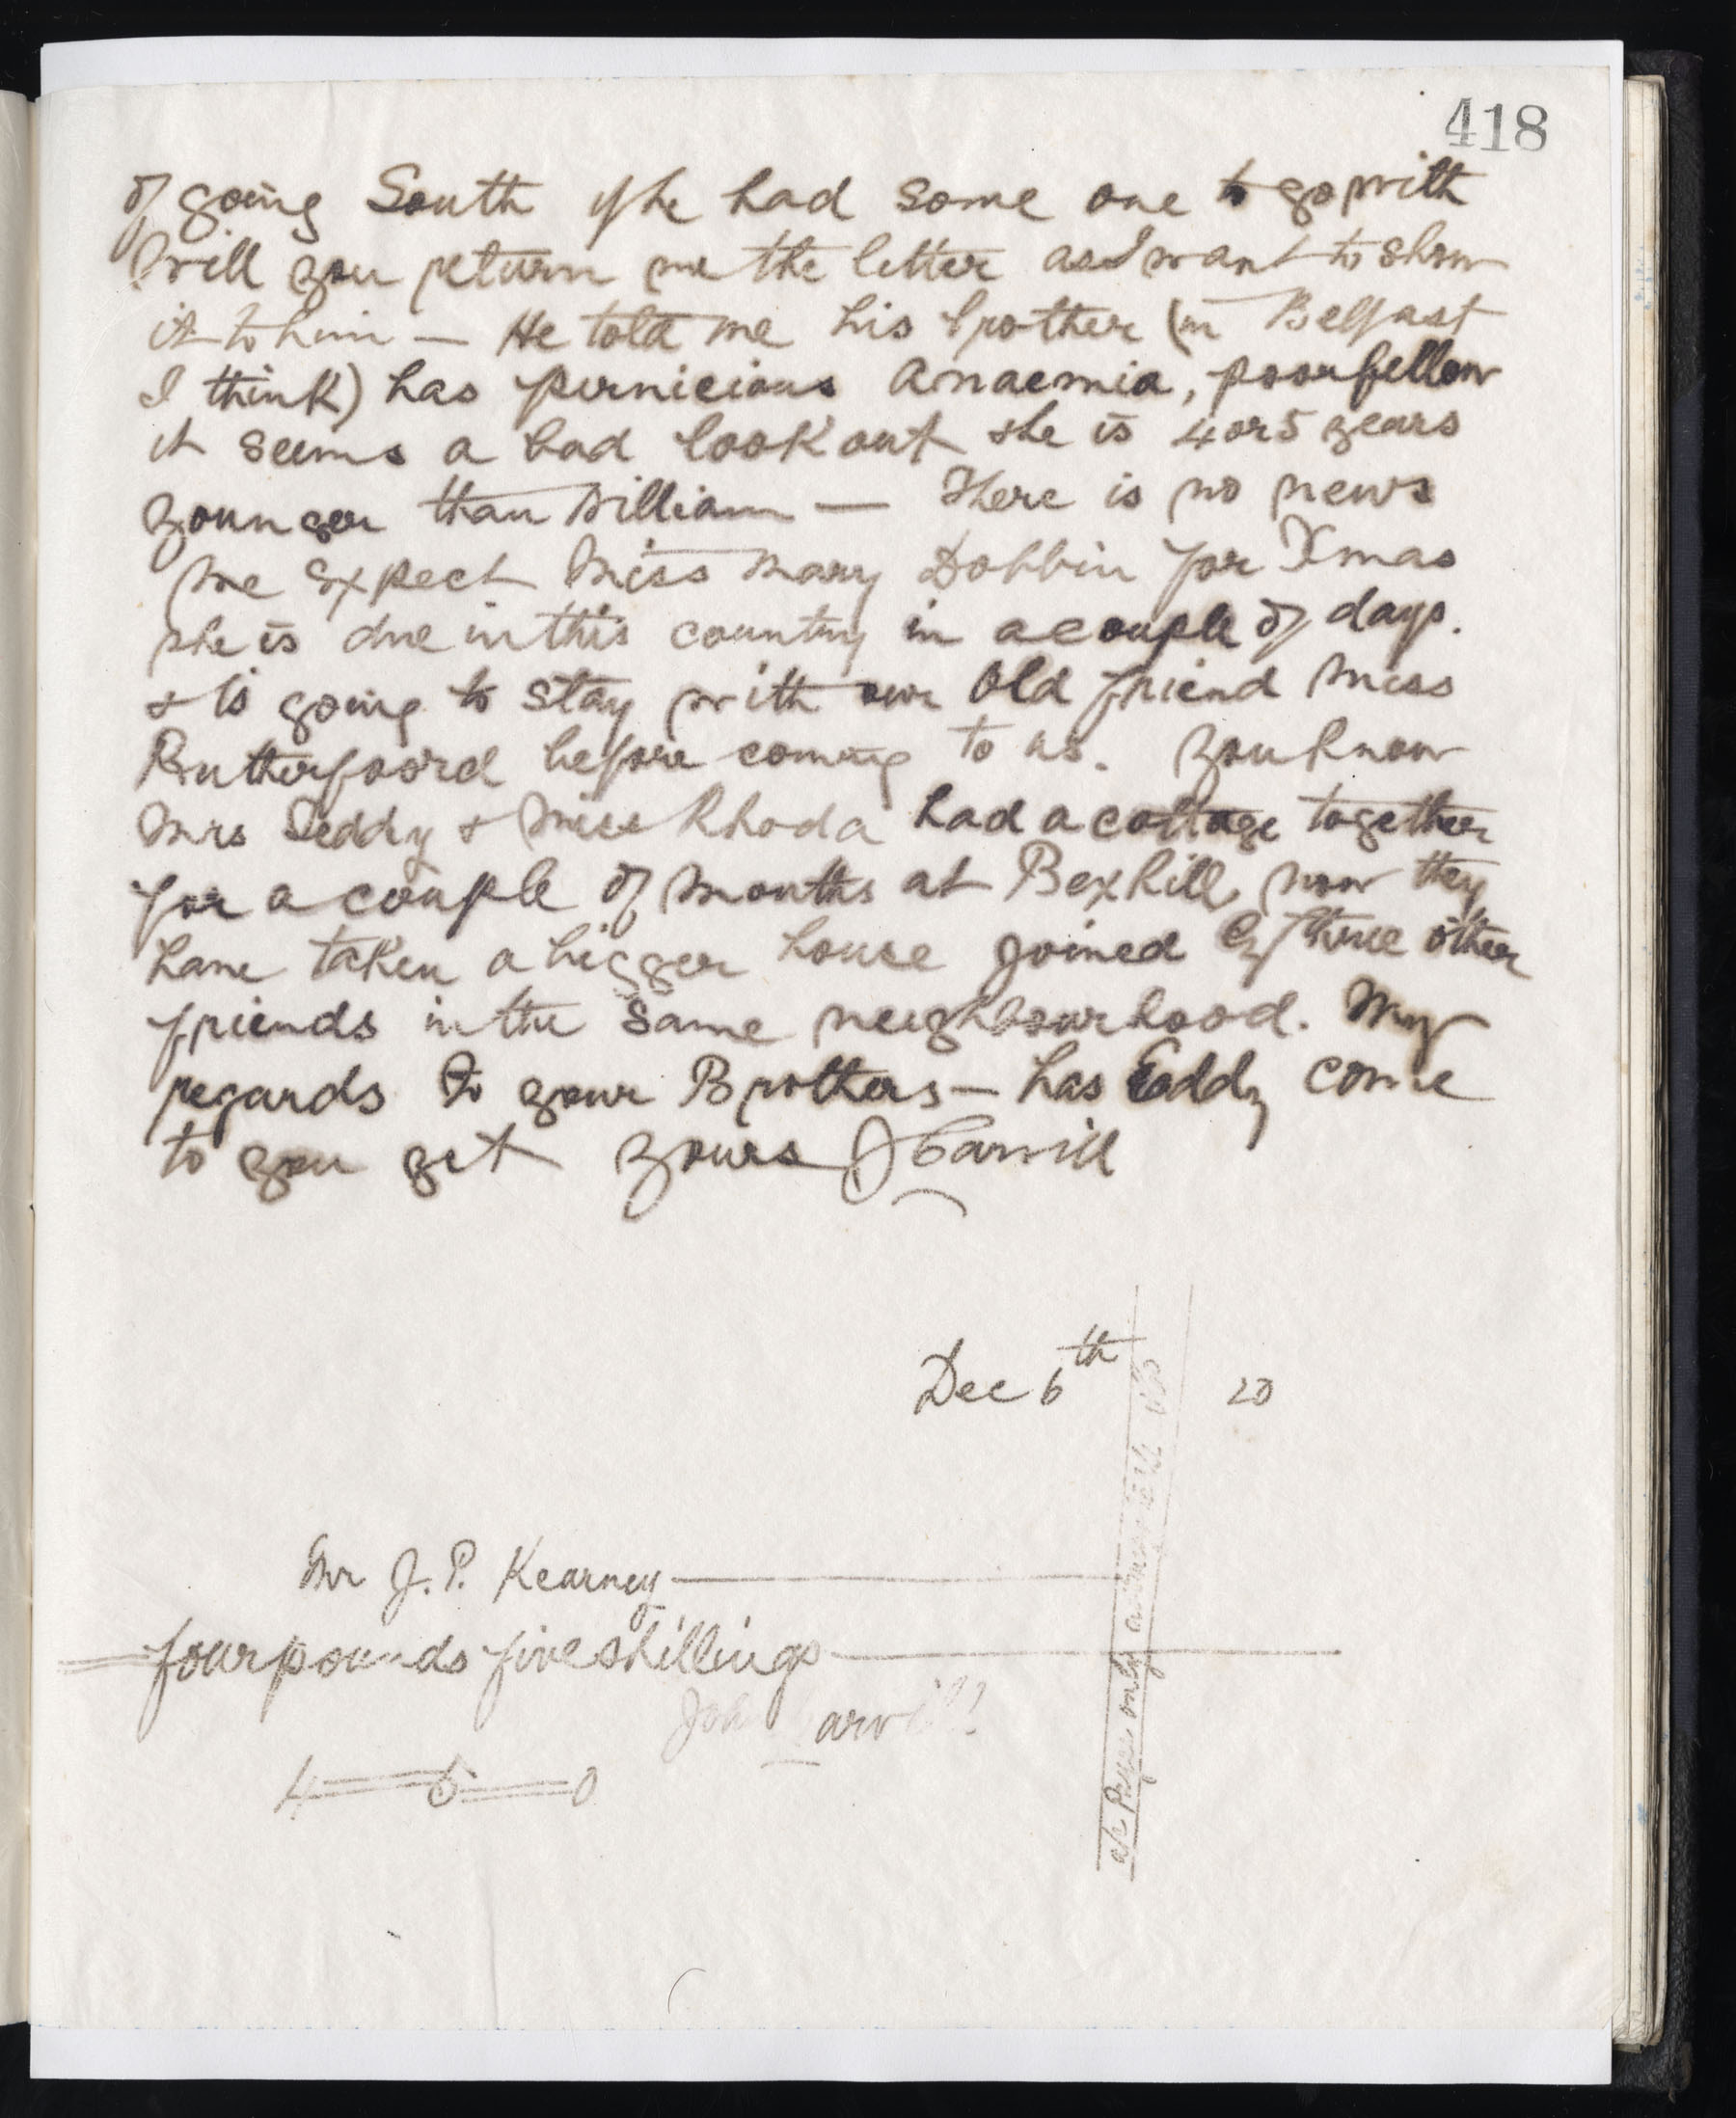 418
of going South if he had some one to go with
Will you return me the letter as I want to show
it to him — He told me his brother (in Belfast
I think) has pernicious anaemia, poor fellow
it seems a bad look out & he is 4 or 5 years
younger than William — There is no news
We expect Miss Mary Dobbin for Xmas
she is due in this country in a couple of days.
& is going to stay with our old friend Miss
Rutterfoord before coming to us. You know
Mrs Seddy & Miss Rhoda had a cottage together
for a couple of months at Bexhill, now they
have taken a bigger house joined by three other
friends in the same neighbourhood. My
regards to your Brothers — has Eddy come
to you yet Yours J Carvill
Dec 6th 20
Mr J. P. Kearney
four pounds five shillings
John arvill
4 = 5 = 0
a/c Payee only